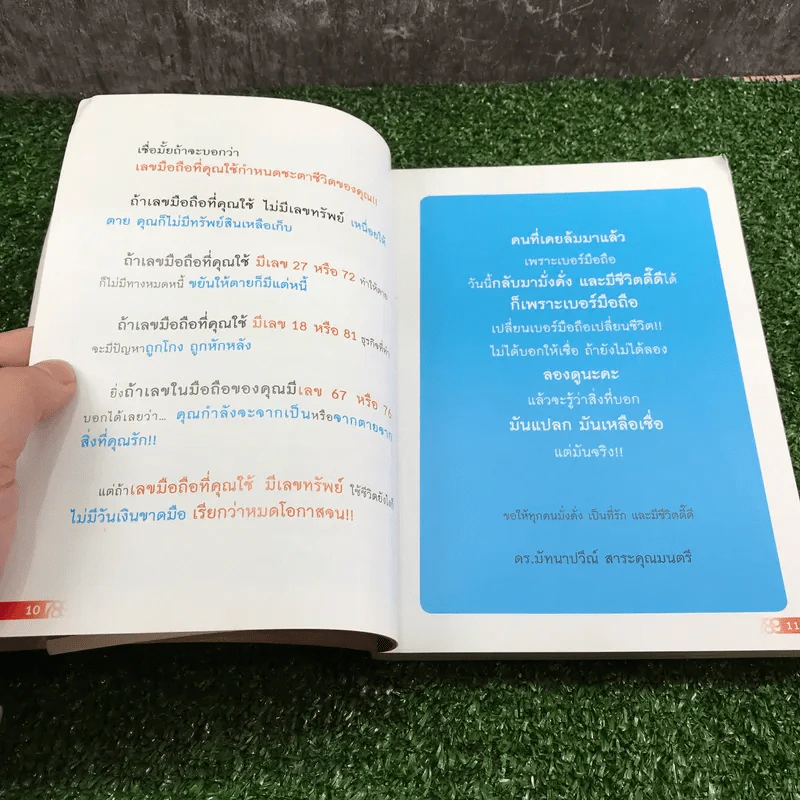 เชื่อมั้ยถ้าจะบอกว่า
เลขมือถือที่คุณใช้กำหนดชะตาชีวิตของคุณ!!
ถ้าเลขมือถือที่คุณใช้ ไม่มีเลขทรัพย์ เหนื่อยให้
ตาย คุณก็ไม่มีทรัพย์สินเหลือเก็บ
ถ้าเลขมือถือที่คุณใช้ มีเลข 27 หรือ 72 ทำให้ตาย
ก็ไม่มีทางหมดหนี้ ขยันให้ตายก็มีแต่หนี้
ถ้าเลขมือถือที่คุณใช้ มีเลข 18 หรือ 81 ธุรกิจที่ทำ
จะมีปัญหาถูกโกง ถูกหักหลัง
ยิ่งถ้าเลขในมือถือของคุณมีเลข 67 หรือ 76
บอกได้เลยว่า... คุณกำลังจะจากเป็นหรือจากตายจาก
สิ่งที่คุณรัก!!
แต่ถ้าเลขมือถือที่คุณใช้ มีเลขทรัพย์ ใช้ชีวิตยังไงก็
ไม่มีวันเงินขาดมือ เรียกว่าหมดโอกาสจน!!
10
คนที่เคยล้มมาแล้ว
เพราะเบอร์มือถือ
วันนี้กลับมามั่งคั่ง และมีชีวิตดี๊ดีได้
ก็เพราะเบอร์มือถือ
เปลี่ยนเบอร์มือถือเปลี่ยนชีวิต!!
ไม่ได้บอกให้เชื่อ ถ้ายังไม่ได้ลอง
ลองดูนะคะ
แล้วจะรู้ว่าสิ่งที่บอก
มันแปลก มันเหลือเชื่อ
แต่มันจริง!!
ขอให้ทุกคนมั่งคั่ง เป็นที่รัก และมีชีวิตดี๊ดี
ดร.มัทนาปวีณ์ สาระคุณมนตรี
11